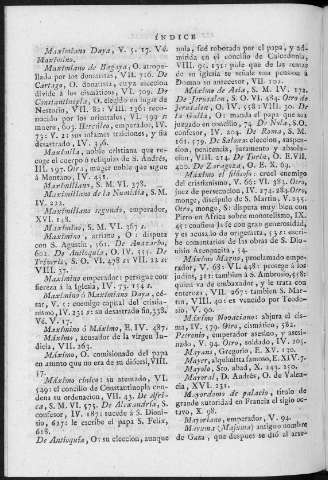 ÍNDICE
Maximiano Daya, V. 5. 17. Vé.
Maximino.
Maximiano de Bagaya, O. atropellada
por los donatistas, VII. 126. De
Cartago, O. donatista, cuya eleccion
divide á los cismáticos, VI. 309. De
Constantinopla, O. elegido en lugar de
Nestorio, VII. 82: VIII. 236: reconocido
por los orientales, VI. 199
muera, 603. Hercúleo, emperador, IV.
73: V. 2: sus infames traiciones, y fin
desastrado, IV. 396.
Maximila, noble cristiana que recoge
el cuerpo ó reliquias de S. Andrés,
III. 197. Otra, muger noble que sigue
á Montano, IV. 431.
Maximiliano, S. M. VI. 378.
Maximiliano de la Numidia, S. M.
IV. 222.
Maximiliano segundo, emperador,
XVI. 128.
Maximino, S. M. VI. 367
Maximino, arriano, O: disputa
con S. Agustin, 161. De Anazarbo,
602. De Antioquía, O. IV. 551: De
Tréveris, S. O. VI. 478
VIII. 37.
Maximino emperador: persigue con
fiereza á la Iglesia, IV. 73. 154
Maximino ó Maximiano Daya, césar,
V. 5: enemigo capital del cristianismo,
IV. 231: su desastrado fin, 358.
Vé. V. 17.
Maximino ó Máximo, E. IV. 487.
Máximo, acusador de la virgen Indicia,
VII. 263.
Máximo, O. comisionado del papa
en asunto que no era de su diócesi, VIII.
17.
Máximo cínico: su atentado, VI.
529: el concilio de Constantinopla condena
su ordenacion, VII. 43. De Africa,
S. M. VI. 575. De Alexandría, S.
confesor, IV. 183: sucede á S. Dionisio,
627: le escribe el papa S. Felix,
618.
De Antioquía, O: su eleccion, aunque
nula, fué reborada por el papa, y admitida
en el concilio de Calcedonia,
VIII. 95. 131: pide que de las rentas
de su iglesia se señale una pension á
Domno su antecesor, VII. 102.
Máximo de Asia, S. M. IV. 172.
De Jerusalen, S. O. VI. 484. Otro de
Jerusalen, O. IV. 558: VIII. 30. De
la Galilia, O: manda el papa que sea
juzgado en concilio, 74. De Nola, S. O.
confesor, IV. 204. De Roma, S. M.
161. 579. De Salona: eleccion, suspension,
penitencia, juramento y absolucion,
VIII. 214. De Turin, O. E. VII.
402. De Zaragoza, O. E. X. 69.
Máximo el filósofo: cruel enemigo
del cristianismo, V. 66: VI. 284. Otro,
juez de persecucion, IV. 274. 284. Otro
monge, discípulo de S. Martin, V. 255.
Otro, monge, S: disputa muy bien con
Pirro en Africa sobre monotelismo, IX.
45: confiesa la fe con gran generosidad,
y es acusado de origenista, 75: escribe
comentarios de las obras de S. Dionisio
Areopagita, 54.
Máximo Magno, proclamado emperador,
V. 68: VI. 448: protege á los
judíos, 321: tambien á S. Ambrosio, 58:
quita ya de embaxador, y le trata con
entereza, VII. 267: tambien S. Martin,
VIII. 40: es vencido por Teodosio,
V. 90.
Máximo Novaciano: abjura el cisma,
IV. 579. Otro, cismático, 582.
Petronio, emperador asesino, y asesinado,
V. 94. Otro, soldado, IV. 205.
Mayans, Gregorio, E. XV. 130.
Mayer, alquimista famoso, E. XIV. 7.
Mayolo, Sto. abad, X. 243. 250.
Mayoral, D. Andrés, O. de Valencia,
XVI. 231.
Mayordomos de palacio, título de
grande autoridad en Francia el siglo octavo,
X. 98.
Mayoriano, emperador, V. 94.
Mayuma (Majuma) antiguo nombre
de Gaza, que despues se dió al arra-